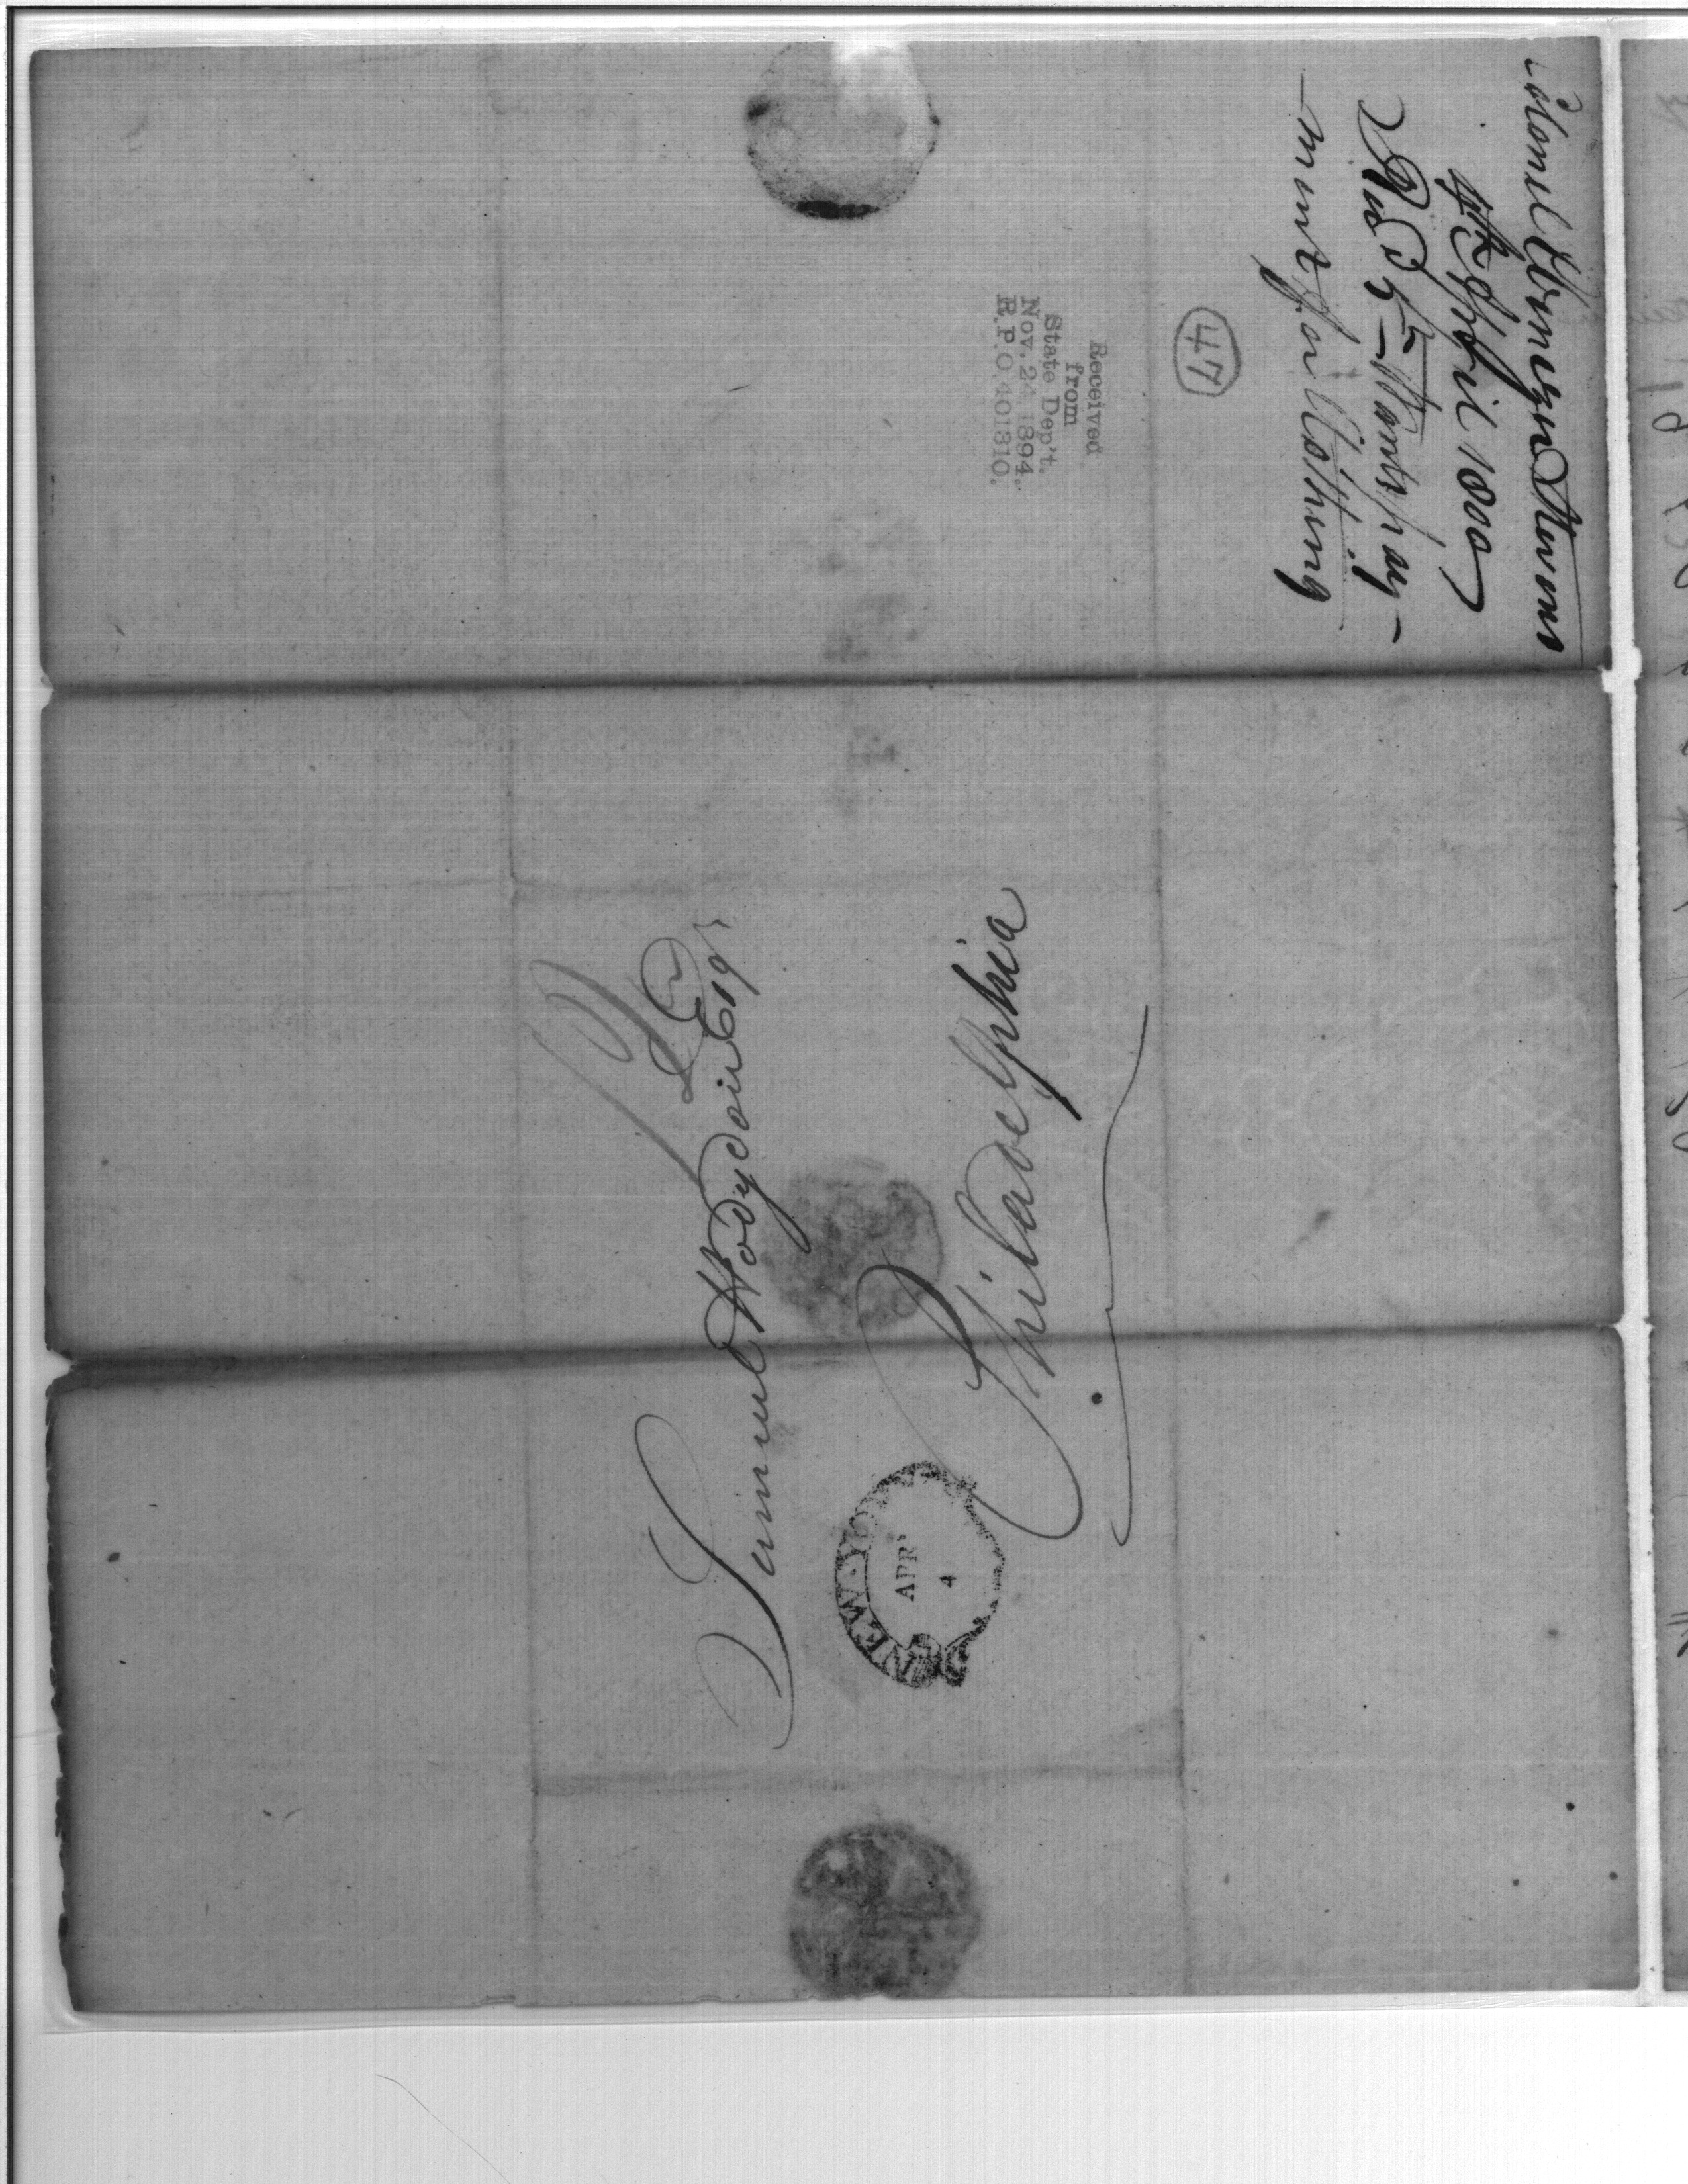 Colonel Ebenezer Stevens
4th April 1800
Rec'd 5 — Wants pay-
-ment for Clothing
47
Received
from
State Dep't.
Nov. 24 1894.
R.P.O. 401310.
Samuel Hodgdon Esqr
Philadelphia
NEW-YORK
APR
4